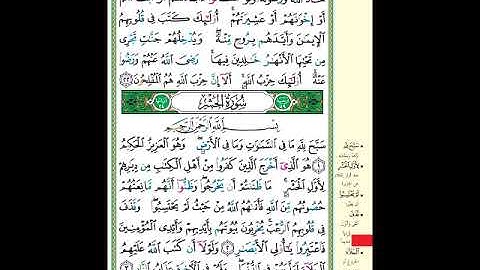 أَوْ إِخْوَٰنَهُمْ أَوْ عَشِيرَتَهُمْ ۚ أُو۟لَٰٓئِكَ كَتَبَ فِى قُلُوبِهِمُ
ٱلْإِيمَٰنَ وَأَيَّدَهُم بِرُوحٍ مِّنْهُ ۖ وَيُدْخِلُهُمْ جَنَّٰتٍ تَجْرِى
مِن تَحْتِهَا ٱلْأَنْهَٰرُ خَٰلِدِينَ فِيهَا ۚ رَضِىَ ٱللَّهُ عَنْهُمْ وَرَضُوا۟
عَنْهُ ۚ أُو۟لَٰٓئِكَ حِزْبُ ٱللَّهِ ۚ أَلَآ إِنَّ حِزْبَ ٱللَّهِ هُمُ ٱلْمُفْلِحُونَ ٢٢
سُورَةُ الْحَشْرِ
بِسْمِ ٱللَّهِ ٱلرَّحْمَٰنِ ٱلرَّحِيمِ
سَبَّحَ لِلَّهِ مَا فِى ٱلسَّمَٰوَٰتِ وَمَا فِى ٱلْأَرْضِ ۖ وَهُوَ ٱلْعَزِيزُ ٱلْحَكِيمُ
١ هُوَ ٱلَّذِىٓ أَخْرَجَ ٱلَّذِينَ كَفَرُوا۟ مِنْ أَهْلِ ٱلْكِتَٰبِ مِن دِيَٰرِهِمْ
لِأَوَّلِ ٱلْحَشْرِ ۚ مَا ظَنَنتُمْ أَن يَخْرُجُوا۟ ۖ وَظَنُّوٓا۟ أَنَّهُم مَّانِعَتُهُمْ
حُصُونُهُم مِّنَ ٱللَّهِ فَأَتَىٰهُمُ ٱللَّهُ مِنْ حَيْثُ لَمْ يَحْتَسِبُوا۟ ۖ وَقَذَفَ
فِى قُلُوبِهِمُ ٱلرُّعْبَ ۚ يُخْرِبُونَ بُيُوتَهُم بِأَيْدِيهِمْ وَأَيْدِى ٱلْمُؤْمِنِينَ
فَٱعْتَبِرُوا۟ يَٰٓأُو۟لِى ٱلْأَبْصَٰرِ ٢ وَلَوْلَآ أَن كَتَبَ ٱللَّهُ عَلَيْهِمُ